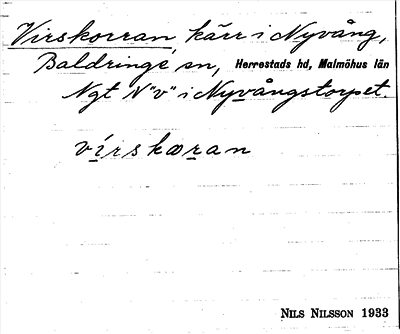 Virskorran, kärr i Nyvång,
Baldringe sn, Herrestads hd, Malmöhus län
Ngt N "v" i Nyvångstorpet.
vírskæran
NILS NILSSON 1933